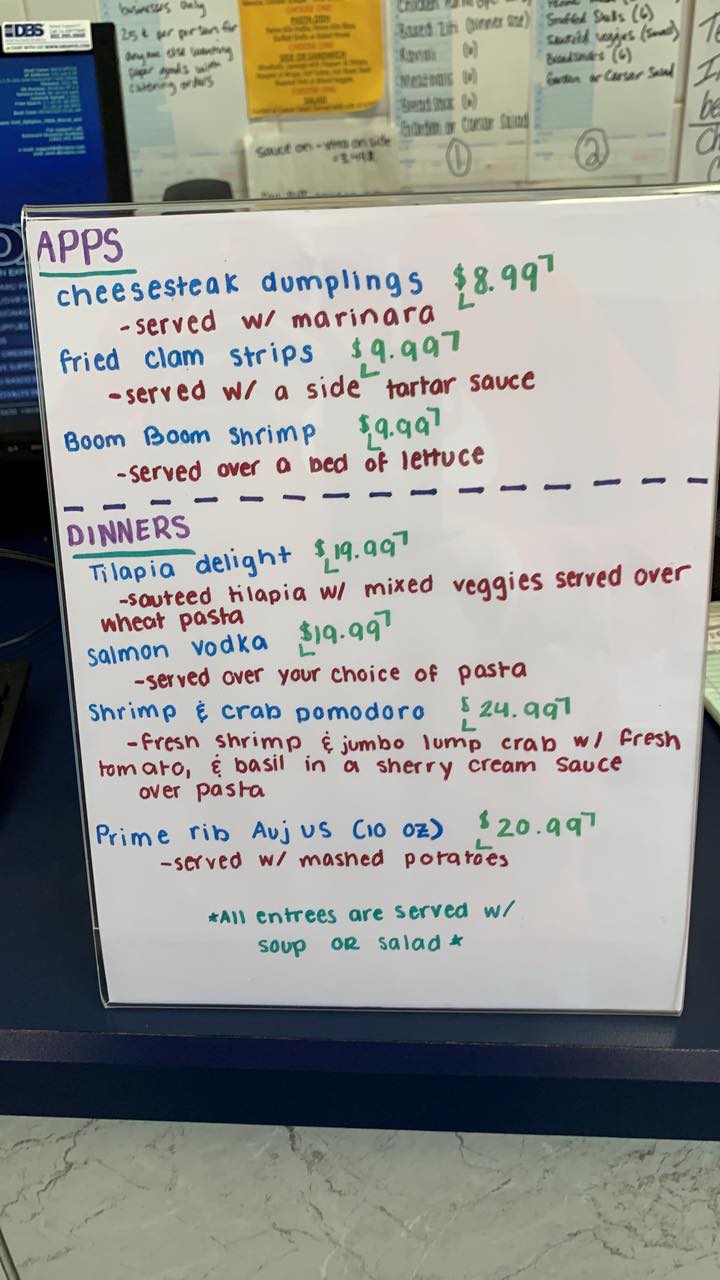 DBS
businesses only
25¢ per person for
anyone else wanting
paper goods with
catering orders
PASTA DISH
CHOOSE ONE
SIDE OR SANDWICH
CHOOSE ONE
SALAD
Sauce on
on side
Baked Ziti (Dinner size)
Ravioli
Meatballs
Garden or Caesar Salad
1
Stuffed Shells (6)
Sauteed veggies (small)
Breadsticks (6)
Garden or Caesar Salad
2
APPS
cheesesteak dumplings $8.99
-served w/ marinara
fried clam strips $9.99
-served w/ a side tartar sauce
Boom Boom Shrimp $9.99
-served over a bed of lettuce
DINNERS
Tilapia delight $19.99
-sauteed tilapia w/ mixed veggies served over
wheat pasta
Salmon vodka $19.99
-served over your choice of pasta
Shrimp & crab pomodoro $24.99
-fresh shrimp & jumbo lump crab w/ fresh
tomato, & basil in a sherry cream sauce
over pasta
Prime rib Auj us (10 oz) $20.99
-served w/ mashed potatoes
*All entrees are served w/
soup OR salad*